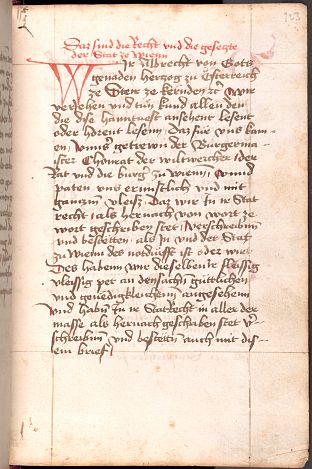 123
Daz sind die Recht vnd die gesetze
der Stat ze wienn
Wir Albrecht von Gots
genaden herczog zu Österreich
ze Steir ze kernden ꝛc wir
veriehen vnd tün kund allen den
die dise hanntuest ansehent lesent
oder hörent lesenn / Daz für vns kam
en / vnnser getrewn der Burgermai
ster Chünrat der wiltwercher / der
Rat vnd die burger zu wienn / vnnd
paten vns ernnstlich vnd mit
ganczm vleisz Daz wir In ir Stat
recht / als hernach von wort ze
wort geschriben stet / verschreibenn
vnd bestetten als In vnd der Stat
zu wienn des notdürfft ist oder wirt
Des habenn wir dieselben ir fleissig
vleissig pet an densachen güttlichen
vnd genedigkleichenn angesehenn
vnd habn In ir Statrecht in aller der
masse als hernach geschriben stet ver
schreibenn vnd bestetn auch mit dis
em brief /